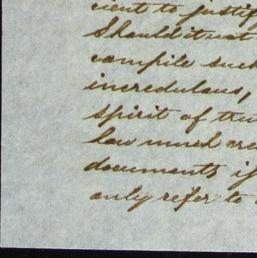 cient to justif
Should it not
compile such
incredulous,
spirit of the
how much cre
documents if
only refer to